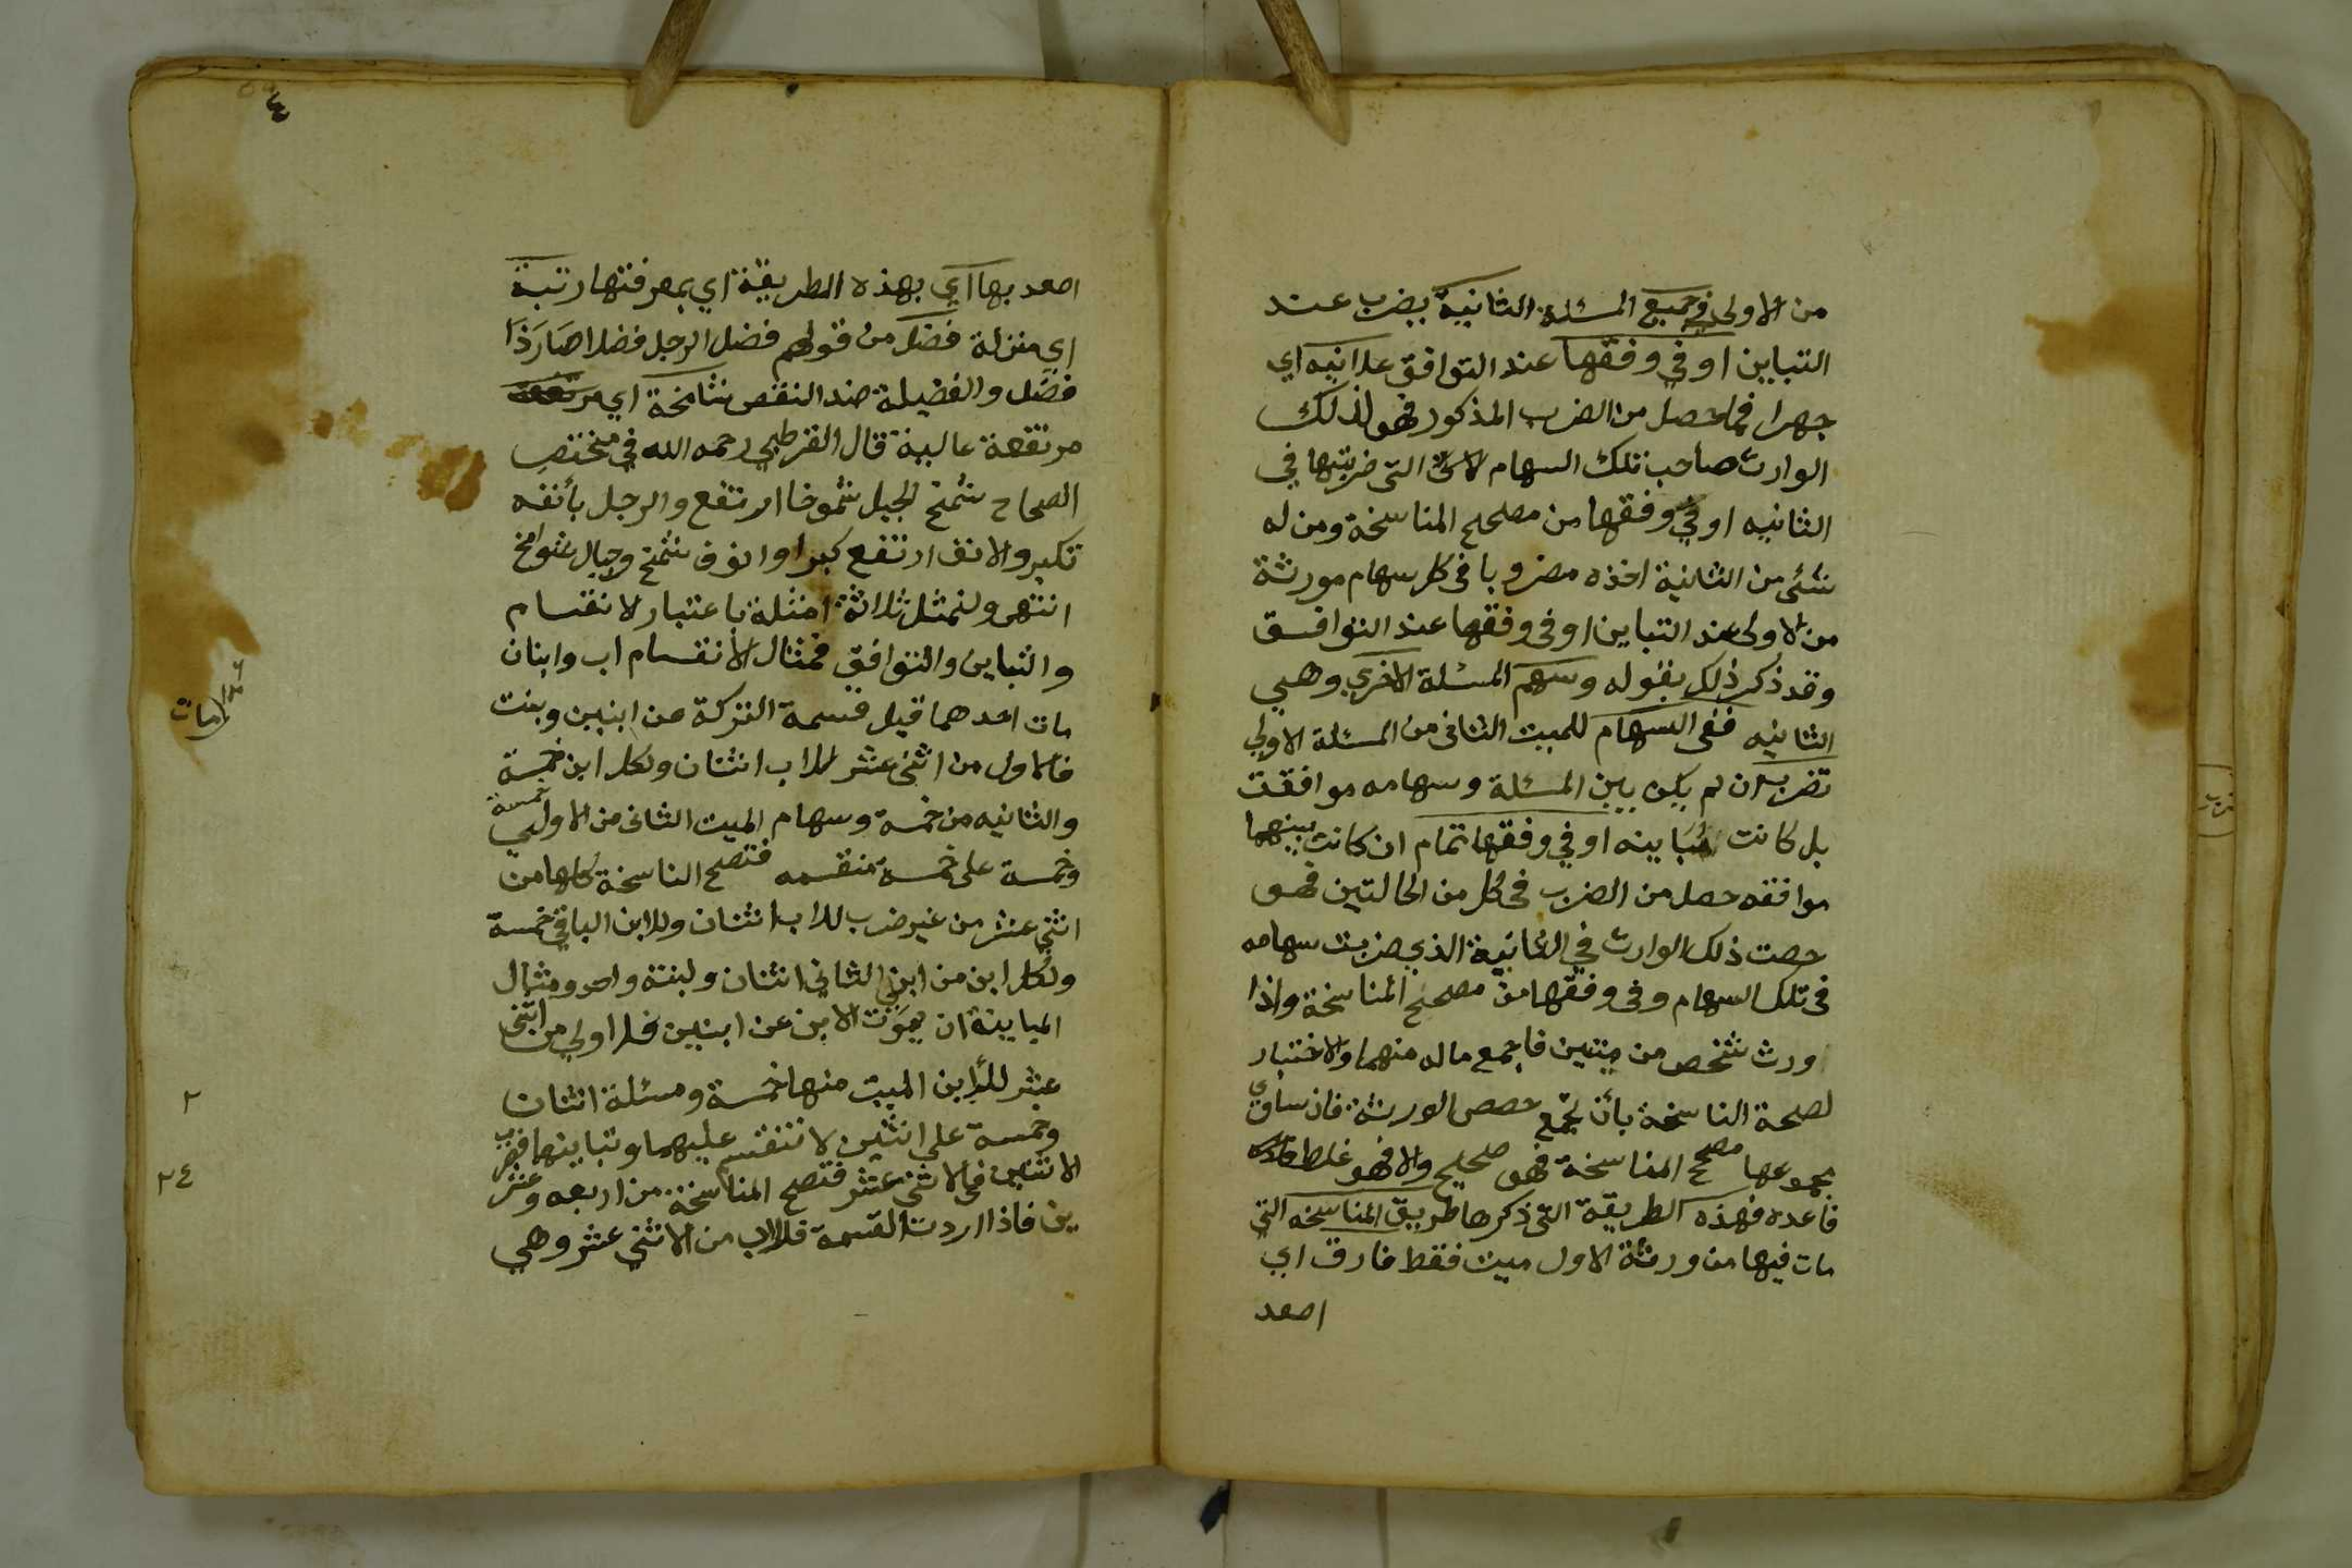 من الاولى في جميع المسئلة الثانية يضرب عند
التباين او في وفقها عند التوافق علانيه اي
جهرا فما حصل من الضرب المذكور فهو لذلك
الوارث صاحب تلك السهام التي ضربتها في
الثانيه او في وفقها من مصحح المناسخة ومن له
شئ من الثانية اخذه مضروبا في كل سهام مورثة
من الاولى عند التباين او في وفقها عند التوافق
وقد ذكر ذلك بقوله وسهم المسئلة الاخري وهي
الثانيه ففي السهام للميت الثاني من المسئلة الاولي
تضرب ان لم يكن بين المسئلة وسهامه موافقت
بل كانت مُبَاينه او في وفقها تمام ان كانت بينهما
موافقه حصل من الضرب في كل من الحالتين فهو
حصت ذلك الوارث في الثانية الذي ضربت سهامه
في تلك السهام وفي وفقها من مصحح المناسخة واذا
ورث شخص من ميتين فاجمع ماله منهما والاختبار
لصحة الناسخة بأن تجمع حصص الورثة فان ساوي
مجموعها مصحح المناسخة فهو صحيح والا فهو غلط
قاعده فهذه الطريقة التي ذكرها طريق المناسخه التي
مات فيها من ورثة الاول ميت فقط فارق اي
اصعد
٤
اصعد بها اي بهذه الطريقة اي بمعرفتها رتبة
اي منزلة فضل من قولهم فضل الرجل فضلا صَارَ ذَا
فضل والفضيلة ضد النقص شامخة اي
مرتفعة عالية قال القرطبي رحمه الله في مختصر
الصحاح شمخ الجبل شموخا ارتفع والرجل بأنفه
تكبر والانف ارتفع كبرا وانوف شمخ وجبال شوامخ
انتهى ولنمثل ثلاثة امثلة باعتبار الانقسام
والتباين والتوافق فمثال الأنقسام اب وابنان
مات احدهما قبل قسمة التركة عن ابنين وبنت
فالاولى من اثني عشر للاب اثنان ولكل ابن خمسة
والثانيه من خمسة وسهام الميت الثاني من الاولي خمسة
وخمسة على خمسة منقسمه فتصح الناسخة كلها من
اثني عشر من غير ضرب للاب اثنان وللابن الباقي خمسة
ولكل ابن من ابني الثاني اثنان ولبنته واحد ومثال
المباينة ان يموت الابن عن ابنين فلاولي من اثني
عشر للأبن الميت منها خمسة ومسئلة اثنان
وخمسة على اثنين لا تنقسم عليهما وتباينهما فضرب
الاثنين في الاثني عشر فتصح المناسخة من اربعه وعشر
ين فاذا اردت القسمة فللاب من الاثني عشر وهي
مات
٢
٢٤